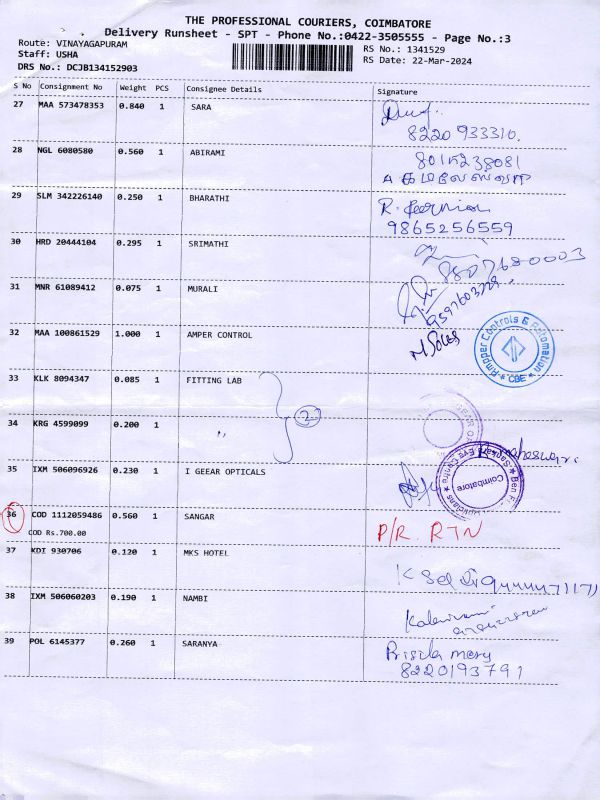 THE PROFESSIONAL COURIERS, COIMBATORE
Delivery Runsheet - SPT - Phone No.:0422-3505555 - Page No.:3
Route: VINAYAGAPURAM
RS No.: 1341529
Staff: USHA
RS Date: 22-Mar-2024
DRS No.: DCJB134152903
S No Consignment No Weight PCS Consignee Details Signature
27 MAA 573478353 0.840 1 SARA
8220 933310.
28 NGL 6080580 0.560 1 ABIRAMI
8015238081
29 SLM 342226140 0.250 1 BHARATHI
9865256559
30 HRD 20444104 0.295 1 SRIMATHI
8807680003
31 MNR 61089412 0.075 1 MURALI
32 MAA 100861529 1.000 1 AMPER CONTROL
Ampper Controls & Automation
* CBE *
33 KLK 8094347 0.085 1 FITTING LAB
2
34 KRG 4599099 0.200 1 ,,
35 IXM 506096926 0.230 1 I GEEAR OPTICALS
Coimbatore
36 COD 1112059486 0.560 1 SANGAR
COD Rs.700.00
P/R. RTN
37 KDI 930706 0.120 1 MKS HOTEL
38 IXM 506060203 0.190 1 NAMBI
39 POL 6145377 0.260 1 SARANYA
Prisila mery
8220193791